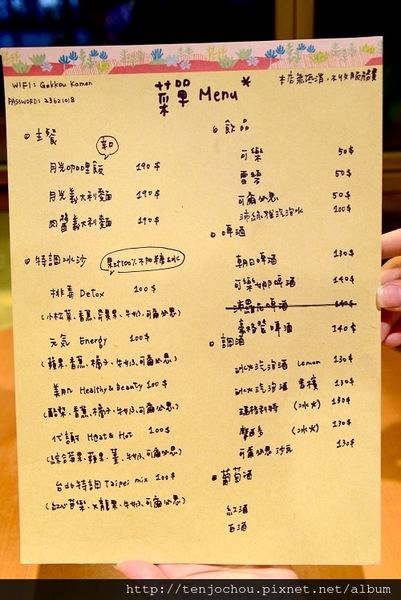 WIFI: Gakkou Kamen
PASSWORD: 23621018
菜單 Menu *
本店無低消,不收服務費
主餐
辛口
月光咖哩飯 190$
月光義大利麵 190$
肉醬義大利麵 190$
特調冰沙
果汁100%不加糖&水
排毒 Detox 100$
元氣 Energy 100$
(蘋果、香蕉、橘子、牛奶、可爾必思)
美肌 Healthy & Beauty 100$
(酪梨、香蕉、橘子、牛奶、可爾必思)
代謝 Heat & Hot 100$
(綜合莓果、蘋果、薑、牛奶、可爾必思)
台北特調 Taipei mix 100$
(紅心芭樂、火龍果、牛奶、可爾必思)
飲品
可樂 50$
雪碧 50$
可爾必思 50$
沛綠雅汽泡水 100$
啤酒
朝日啤酒 130$
可樂娜啤酒 140$
啤酒 140$
啤酒 140$
調酒
冰火汽泡酒 Lemon 130$
冰火汽泡酒 130$
瑪格利特 (冰火) 130$
(冰火) 130$
可爾必思沙瓦 130$
葡萄酒
紅酒
白酒
http://tenjochou.pixnet.net/album